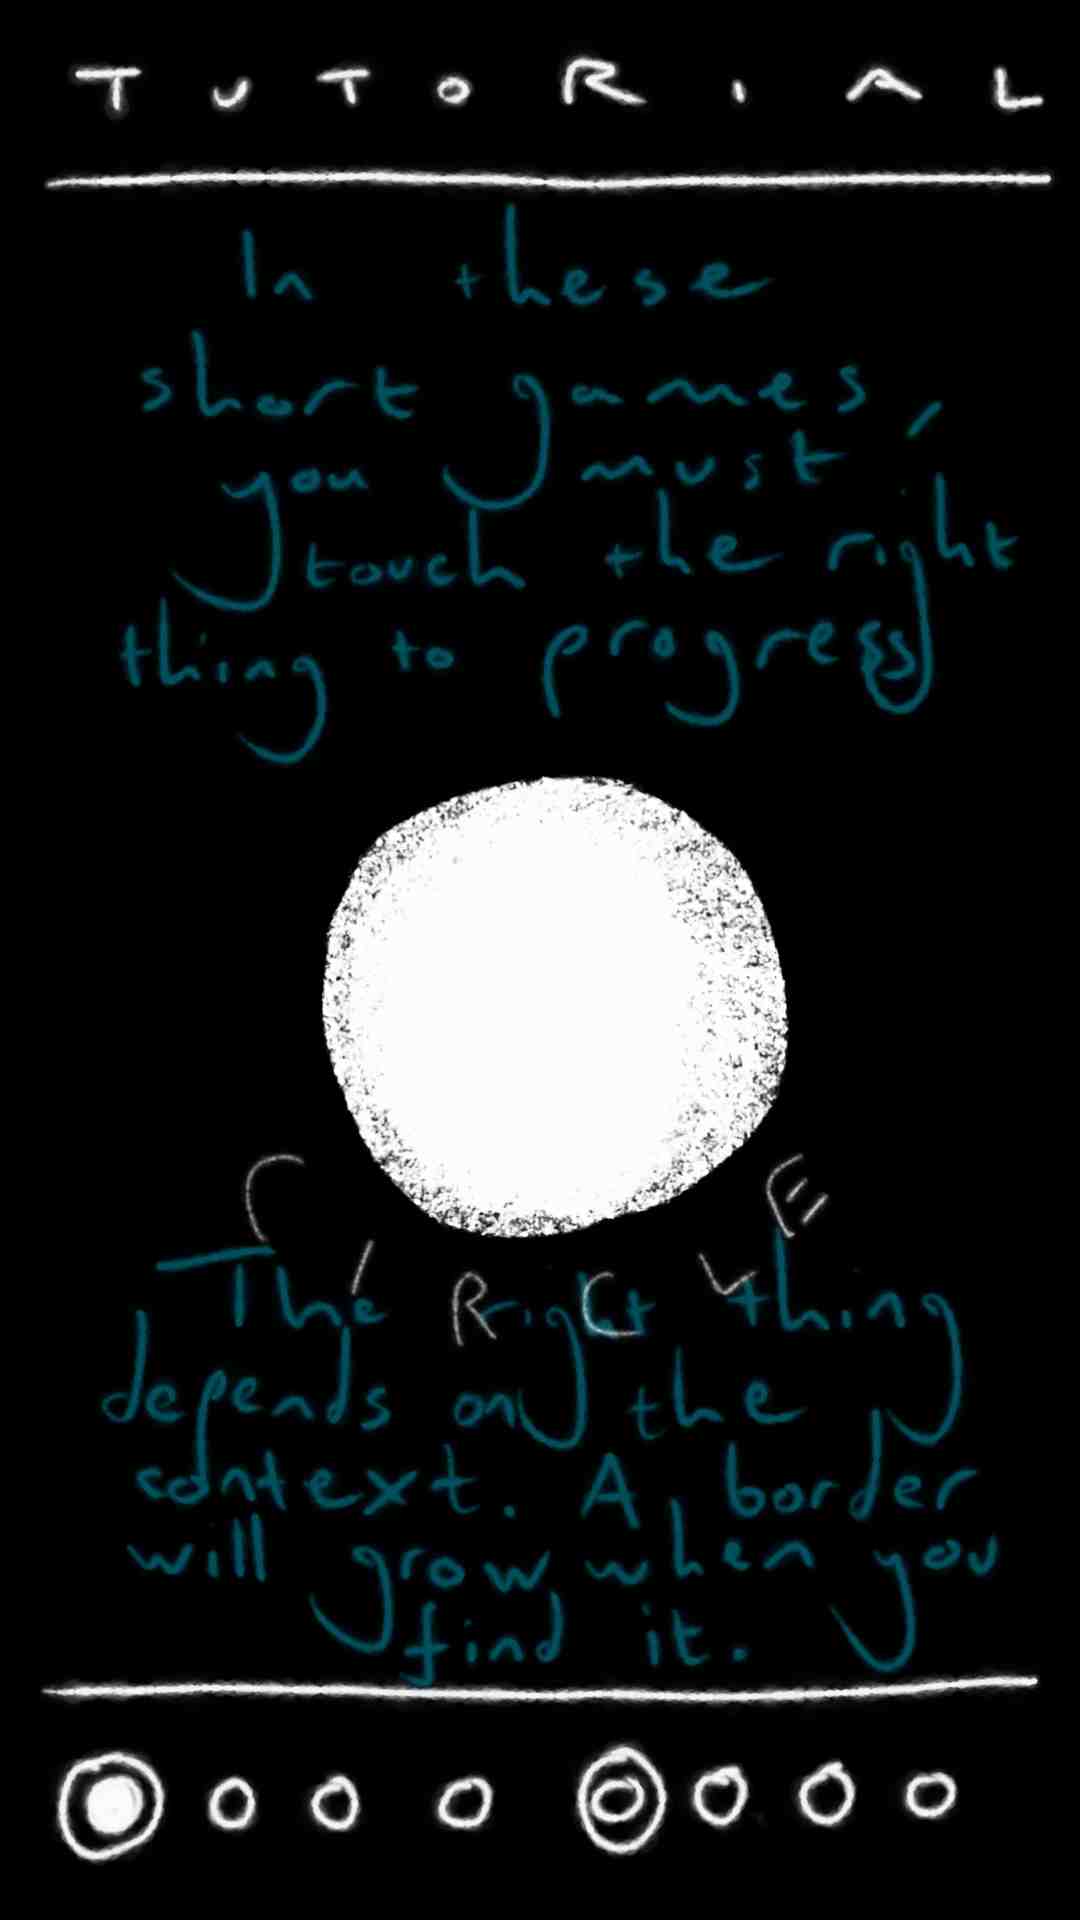 TUTORIAL
In these
short games,
you must
touch the right
thing to progress
CIRCLE
The right thing
depends on the
context. A border
will grow when you
find it.